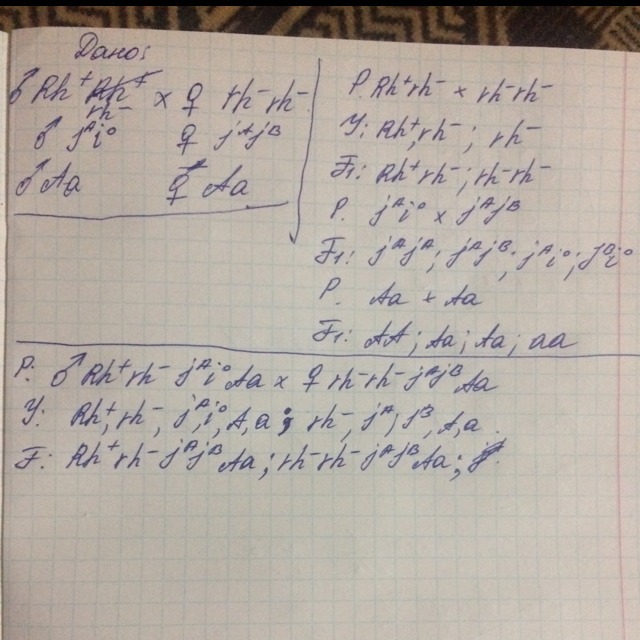 Дано:
♂ Rh⁺ rh⁻ × ♀ rh⁻rh⁻
♂ jᴬi⁰ ♀ jᴬjᴮ
♂ Aa ♀ Aa
P. Rh⁺rh⁻ × rh⁻rh⁻
У: Rh⁺, rh⁻; rh⁻
F₁: Rh⁺rh⁻; rh⁻rh⁻
P. jᴬi⁰ × jᴬjᴮ
F₁: jᴬjᴬ; jᴬjᴮ; jᴬi⁰; jᴮi⁰
P. Aa × Aa
F₁: AA; Aa; Aa; aa
P: ♂ Rh⁺rh⁻ jᴬi⁰ Aa × ♀ rh⁻rh⁻ jᴬjᴮ Aa
У: Rh⁺, rh⁻, jᴬ, i⁰, A, a; rh⁻, jᴬ, jᴮ, A, a.
F: Rh⁺rh⁻ jᴬjᴮ Aa; rh⁻rh⁻ jᴬjᴮ Aa;